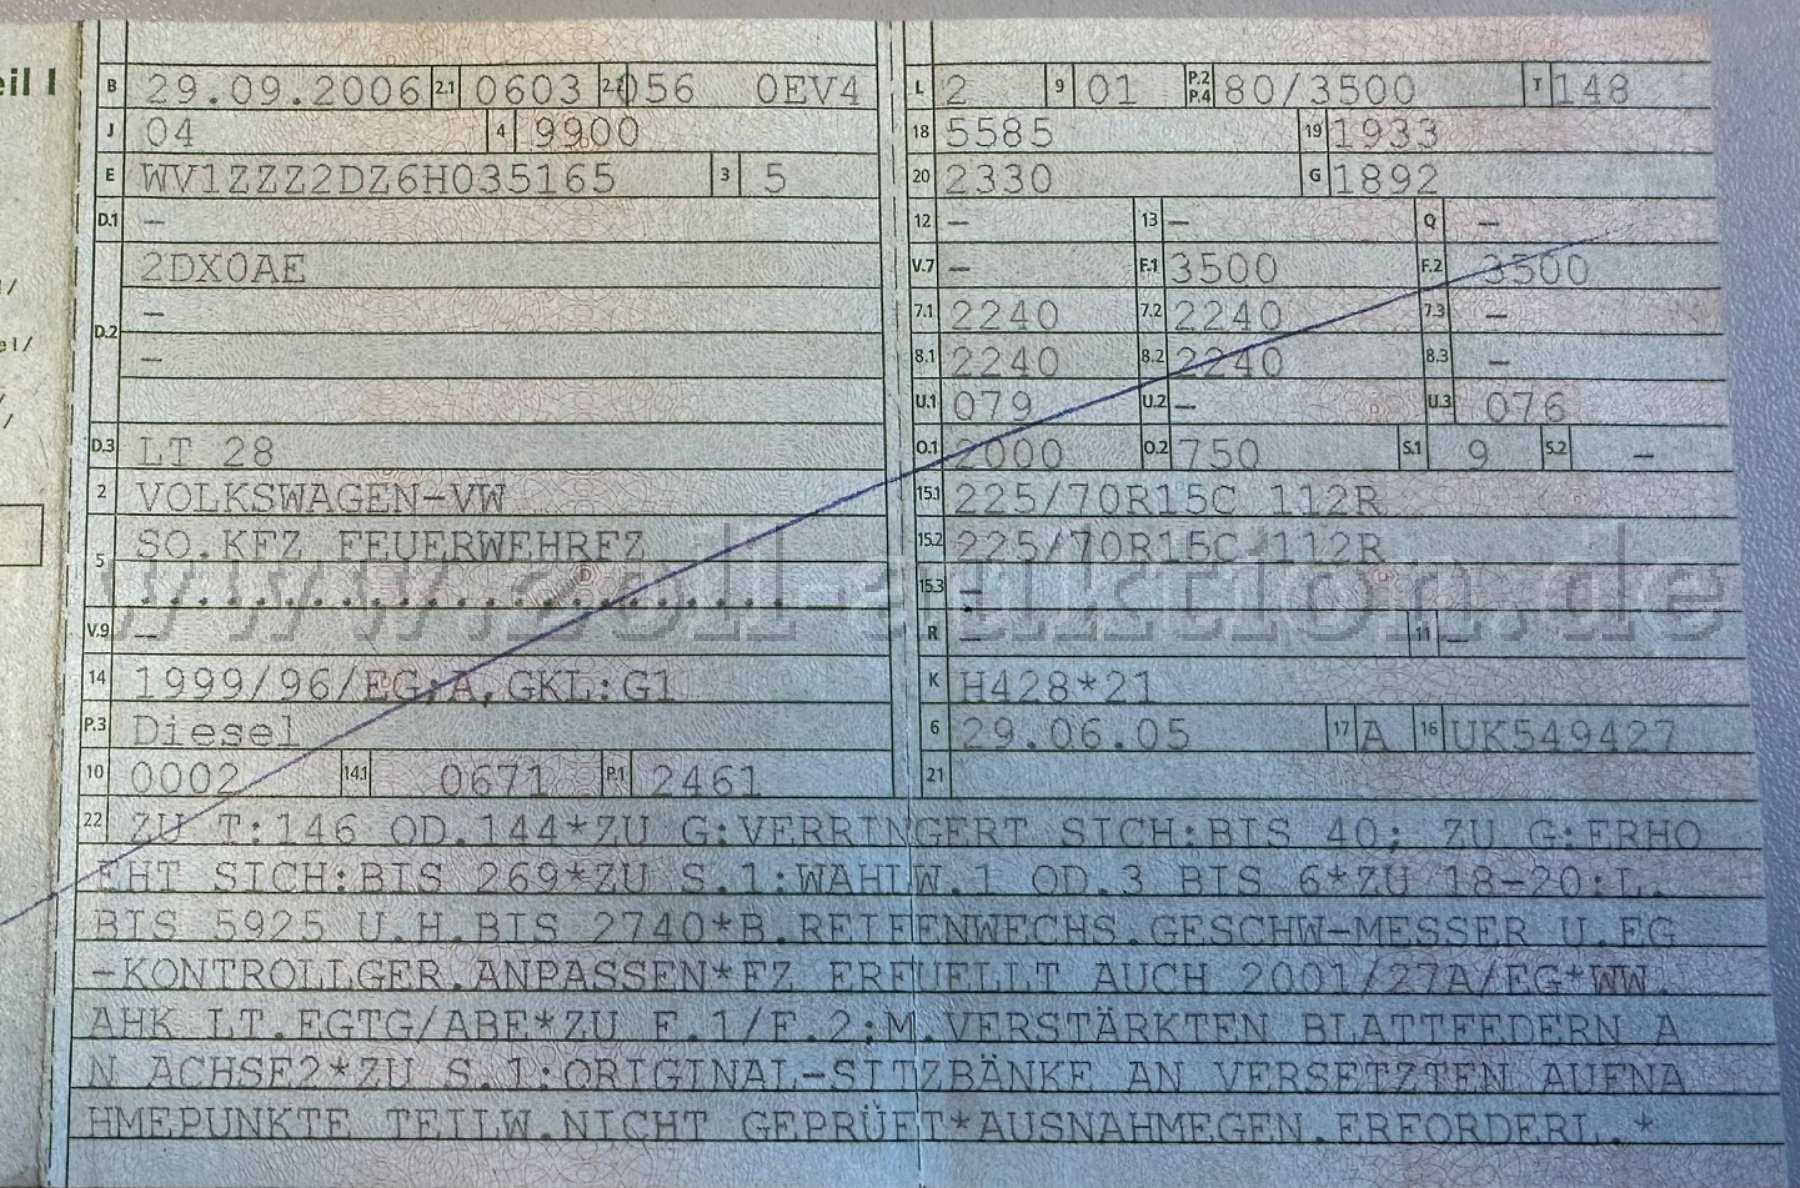 eil I
B 29.09.2006 2.1 0603 2.2 056 0EV4
J 04 4 9900
E WV1ZZZ2DZ6H035165 3 5
D.1 –
2DX0AE
–
D.2
–
D.3 LT 28
2 VOLKSWAGEN-VW
SO.KFZ FEUERWEHRFZ
5
V.9 –
14 1999/96/EG;A,GKL:G1
P.3 Diesel
10 0002 14.1 0671 P.1 2461
L 2 9 01 P.2 P.4 80/3500 T 148
18 5585 19 1933
20 2330 G 1892
12 – 13 – Q –
V.7 – F.1 3500 F.2 3500
7.1 2240 7.2 2240 7.3 –
8.1 2240 8.2 2240 8.3 –
U.1 079 U.2 – U.3 076
O.1 2000 O.2 750 S.1 9 S.2 –
15.1 225/70R15C 112R
15.2 225/70R15C 112R
15.3 –
R – 11 –
K H428*21
6 29.06.05 17 A 16 UK549427
21
22 ZU T:146 OD.144*ZU G:VERRINGERT SICH:BIS 40; ZU G:ERHO
EHT SICH:BIS 269*ZU S.1:WAHLW.1 OD.3 BIS 6*ZU 18-20:L.
BIS 5925 U.H.BIS 2740*B.REIFENWECHS.GESCHW-MESSER U.EG
-KONTROLLGER.ANPASSEN*FZ ERFUELLT AUCH 2001/27A/EG*WW.
AHK LT.EGTG/ABE*ZU F.1/F.2:M.VERSTÄRKTEN BLATTFEDERN A
N ACHSE2*ZU S.1:ORIGINAL-SITZBÄNKE AN VERSETZTEN AUFNA
HMEPUNKTE TEILW.NICHT GEPRÜFT*AUSNAHMEGEN.ERFORDERL.*
www.zoll-auktion.de